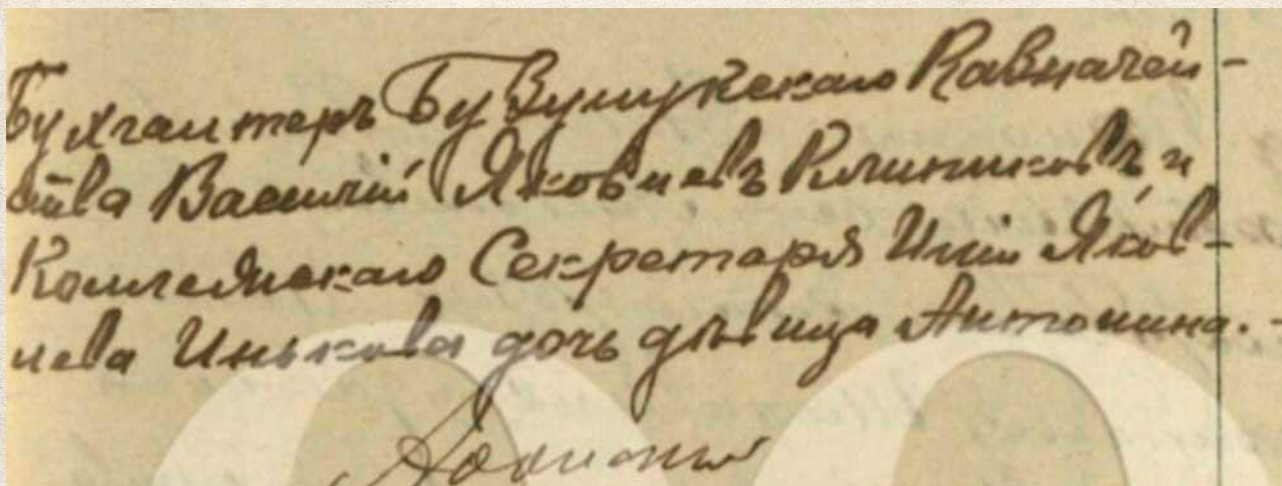 Бухгалтеръ Бузулукскаго Казначей-
ства Василій Яковлевъ Клишковъ и
Коллежскаго Секретаря Иліи Яков-
лева Инькова дочь дѣвица Антонина.